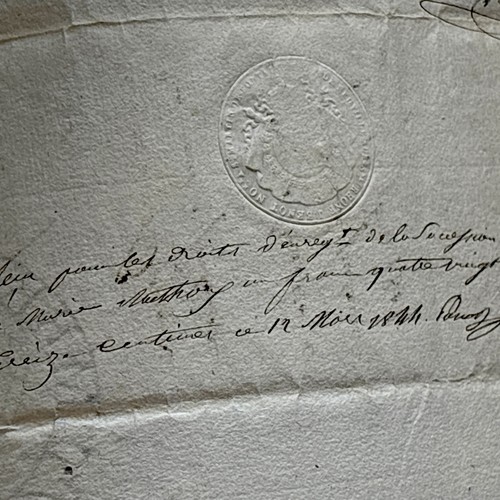 Reçu pour les droits d'enregt de la Succession
Marie Mathieu un franc quatre vingt
treize centimes ce 12 Mars 1844.